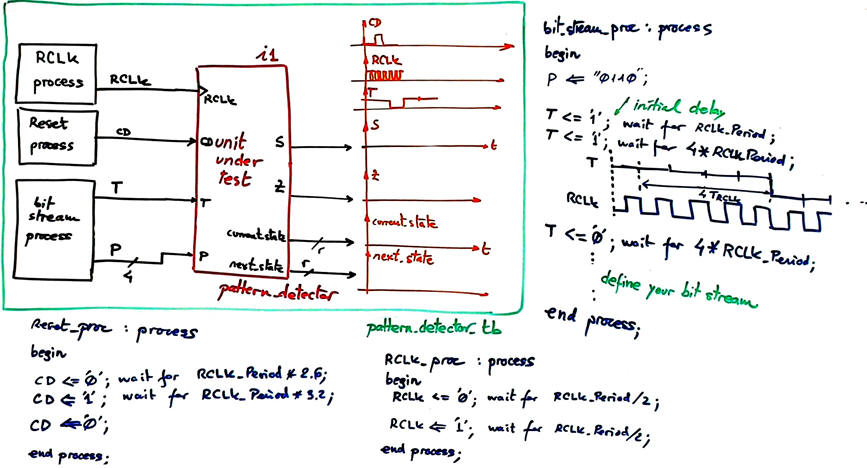 RCLK
process
RCLK
Reset
process
CD
bit
stream
process
T
P
4
i1
RCLK
CD
unit
under
test
T
P
S
Z
current state
r
next_state
r
pattern_detector
CD
RCLK
T
S
t
Z
current state
t
next_state
pattern_detector_tb
bit_stream_proc : process
begin
P <= "0110";
initial delay
T <= '1'; wait for RCLK_Period;
T <= '1'; wait for 4* RCLK_Period;
T
4 TRCLK
RCLK
...
T <= '0'; wait for 4* RCLK_Period;
define your bit stream
end process;
Reset_proc : process
begin
CD <= '0'; wait for RCLK_Period * 2.6;
CD <= '1'; wait for RCLK_Period * 3.2;
CD <= '0';
end process;
RCLK_proc : process
begin
RCLK <= '0'; wait for RCLK_Period/2;
RCLK <= '1'; wait for RCLK_Period/2;
end process;